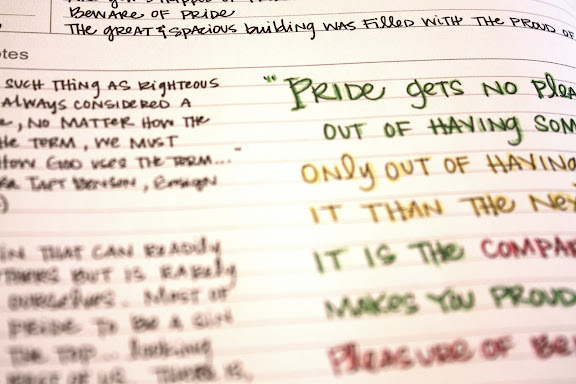 Beware of Pride
The great & spacious building was filled with the proud of
otes
such thing as righteous
always considered a
, no matter how the
the term, we must
how God uses the term..."
Taft Benson, Ensign
)
in that can readily
others but is rarely
ourselves. Most of
pride to be a sin
the top... looking
rest of us. There is,
"Pride gets no plea
out of having som
only out of having
it than the nex
it is the compar
makes you proud
pleasure of be